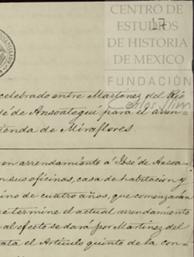 CENTRO
DE ESTUDIOS
DE HISTORIA
DE MEXICO
FUNDACIÓN
Carlos Slim
17
celebrado entre Martinez del Rio
sé de Ansoategui para el arren
ienda de Miraflores.
en arrendamiento á José de Ansoa
sus oficinas, casa de habitacion y
ino de cuatro años, que comenzarán
e termine el actual arrendamiento
al efecto se dará por Martinez del
ata el Articulo quinto de la con